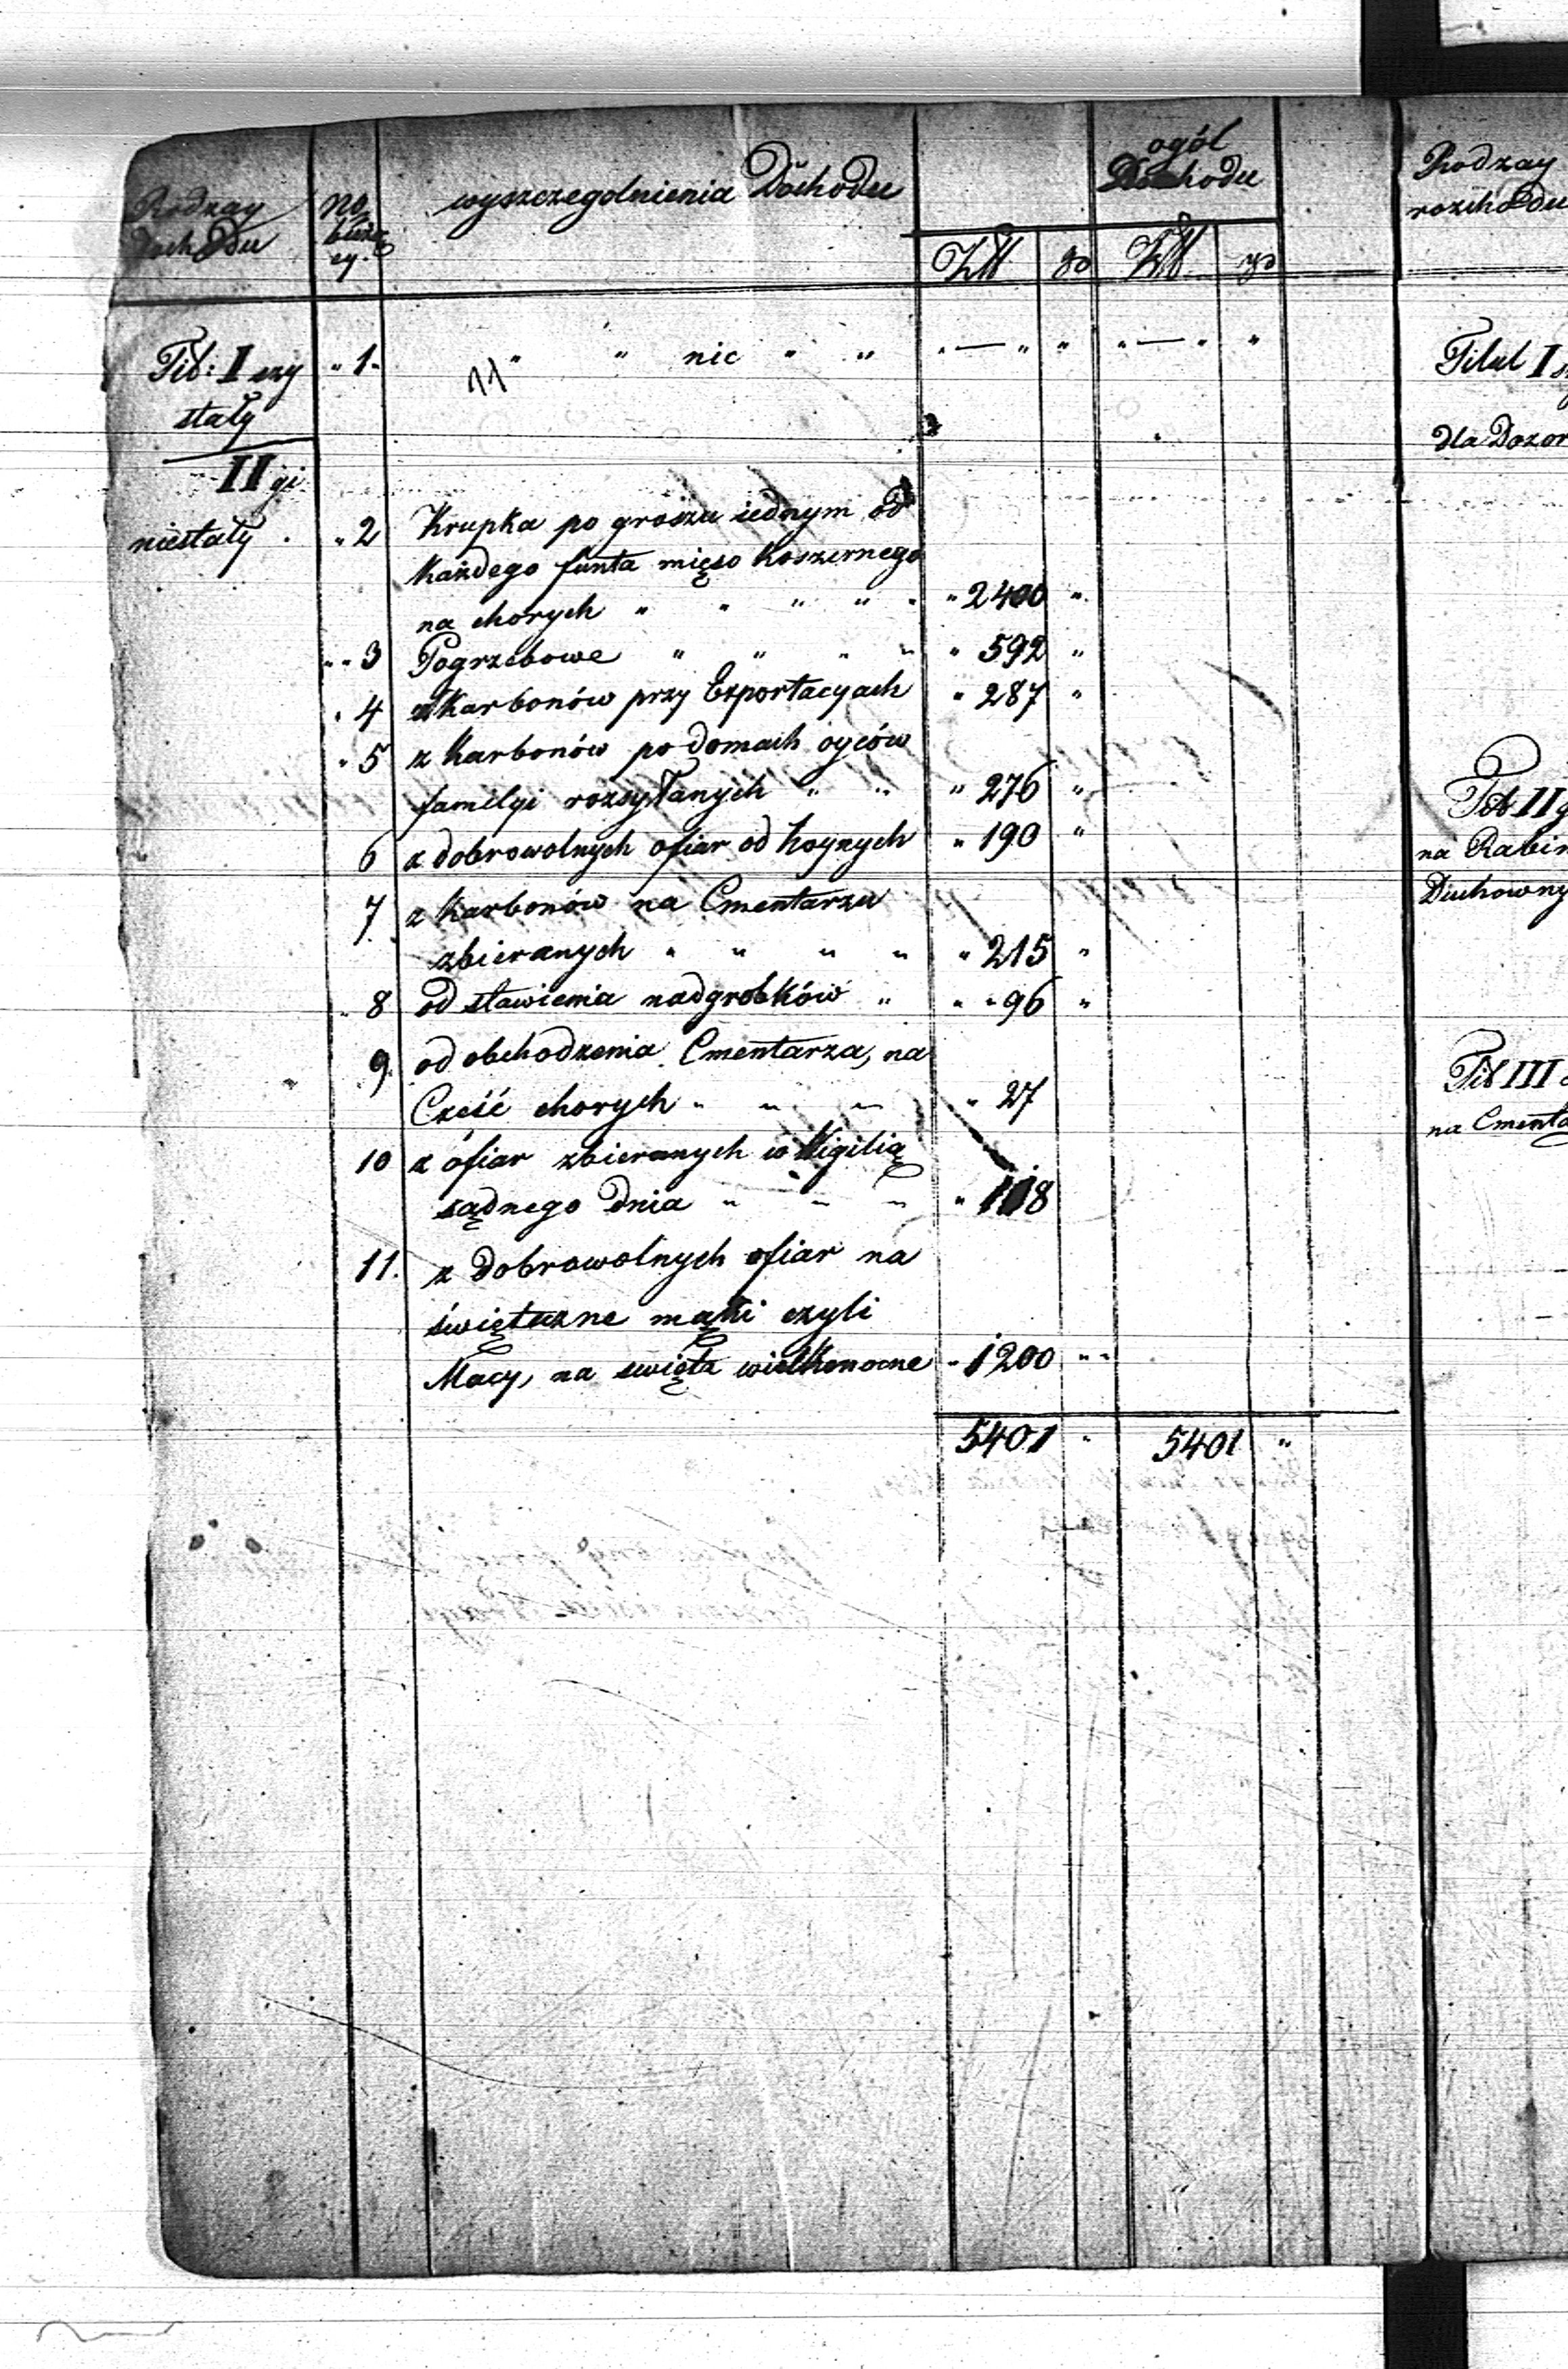 Rodzay dochodu No bieżą cy. wyszczegolnienia Dochodu ogół Dochodu
Złł go Złł go
Tit: I szy " 1 " " nic " " " — " " " — " "
11
stały
II gi
niestały . " 2 Krupka po groszu iednym od
każdego funta mięso koszernego
na chorych " " " " " " 2400 "
" " 3 Pogrzebowe " " " " " 592 "
" 4 z Karbonów przy Exportacyach " 287 "
" 5 z Karbonów po domach oyców
familyi rozsyłanych " " " 276 "
6 z dobrowolnych ofiar od hoynych " 190 "
7 z Karbonów na Cmentarzu
zbieranych " " " " " 215 "
" 8 od stawienia nadgrobków " " " 96 "
9. od obchodzenia Cmentarza, na
Cześć chorych " " " " 27
10 z ofiar zbieranych w Wigilią
sądnego dnia " " " " 118
11. z dobrowolnych ofiar na
świętuzne mąki czyli
Macy, na swięta wielkonocne " 1200 " "
5401 " 5401 "
Rodzay
rozchodu
Titul I
dla Dozor
Tit II g
na Rabin
Duchowny
Tit III
na Cmenta